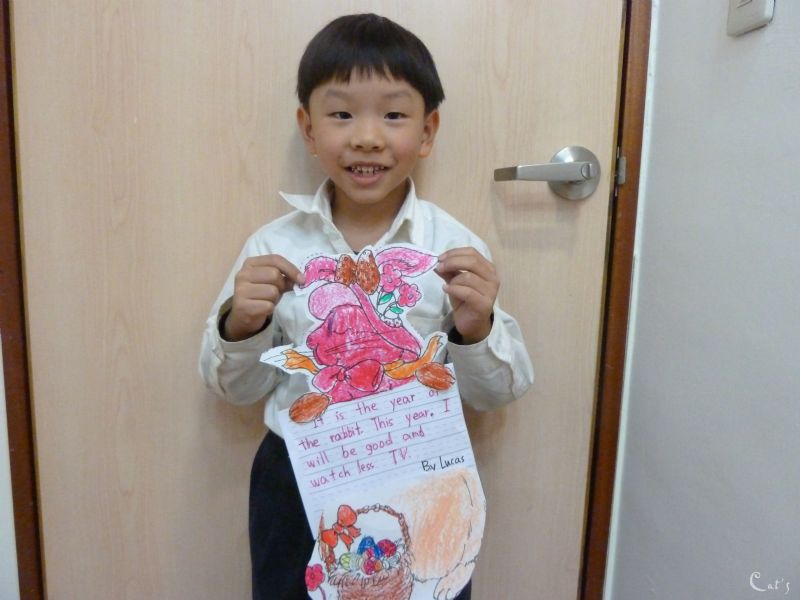 It is the year of
the rabbit. This year. I
will be good and
watch less TV.
By Lucas
Cat's